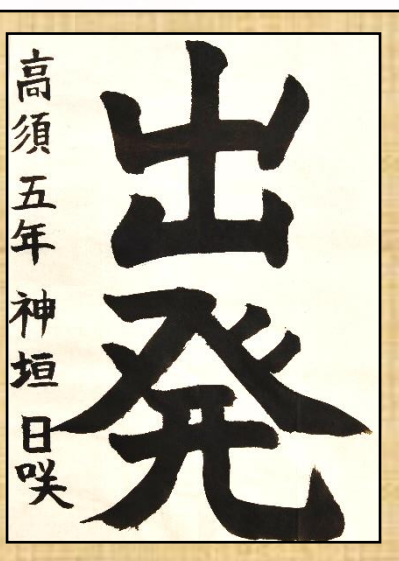 出発
高須 五年 神垣 日咲